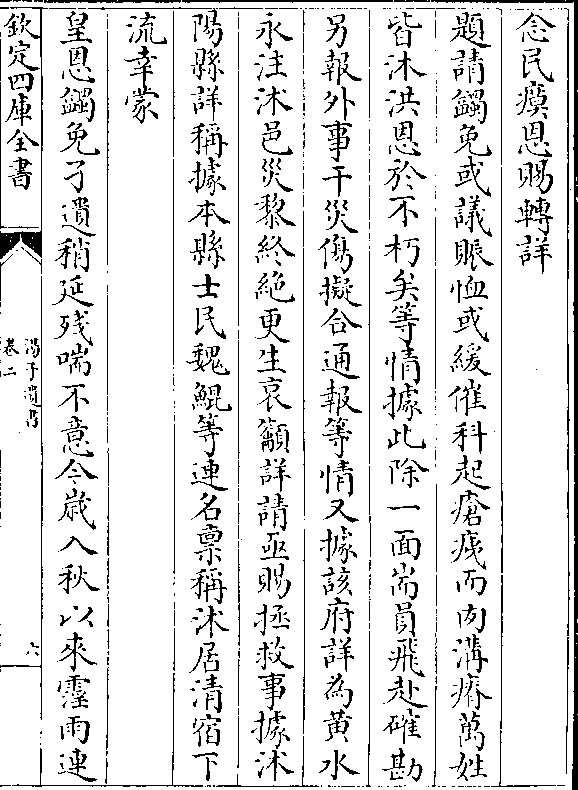 念民瘼恩賜轉詳
題請蠲免或議賑恤或緩催科起瘡痍而肉溝瘠萬姓
皆沐洪恩於不朽矣等情據此除一面耑員飛赴確勘
另報外事干災傷擬合通報等情又據該府詳為黄水
永注沐邑災黎終絶更生哀籲詳請亟賜拯救事據沭
陽縣詳稱據本縣士民魏鯤等連名禀稱沐居清宿下
流幸蒙
皇恩蠲免孑遺稍延殘喘不意今歲入秋以來霪雨連
欽定四庫全書
卷二
六